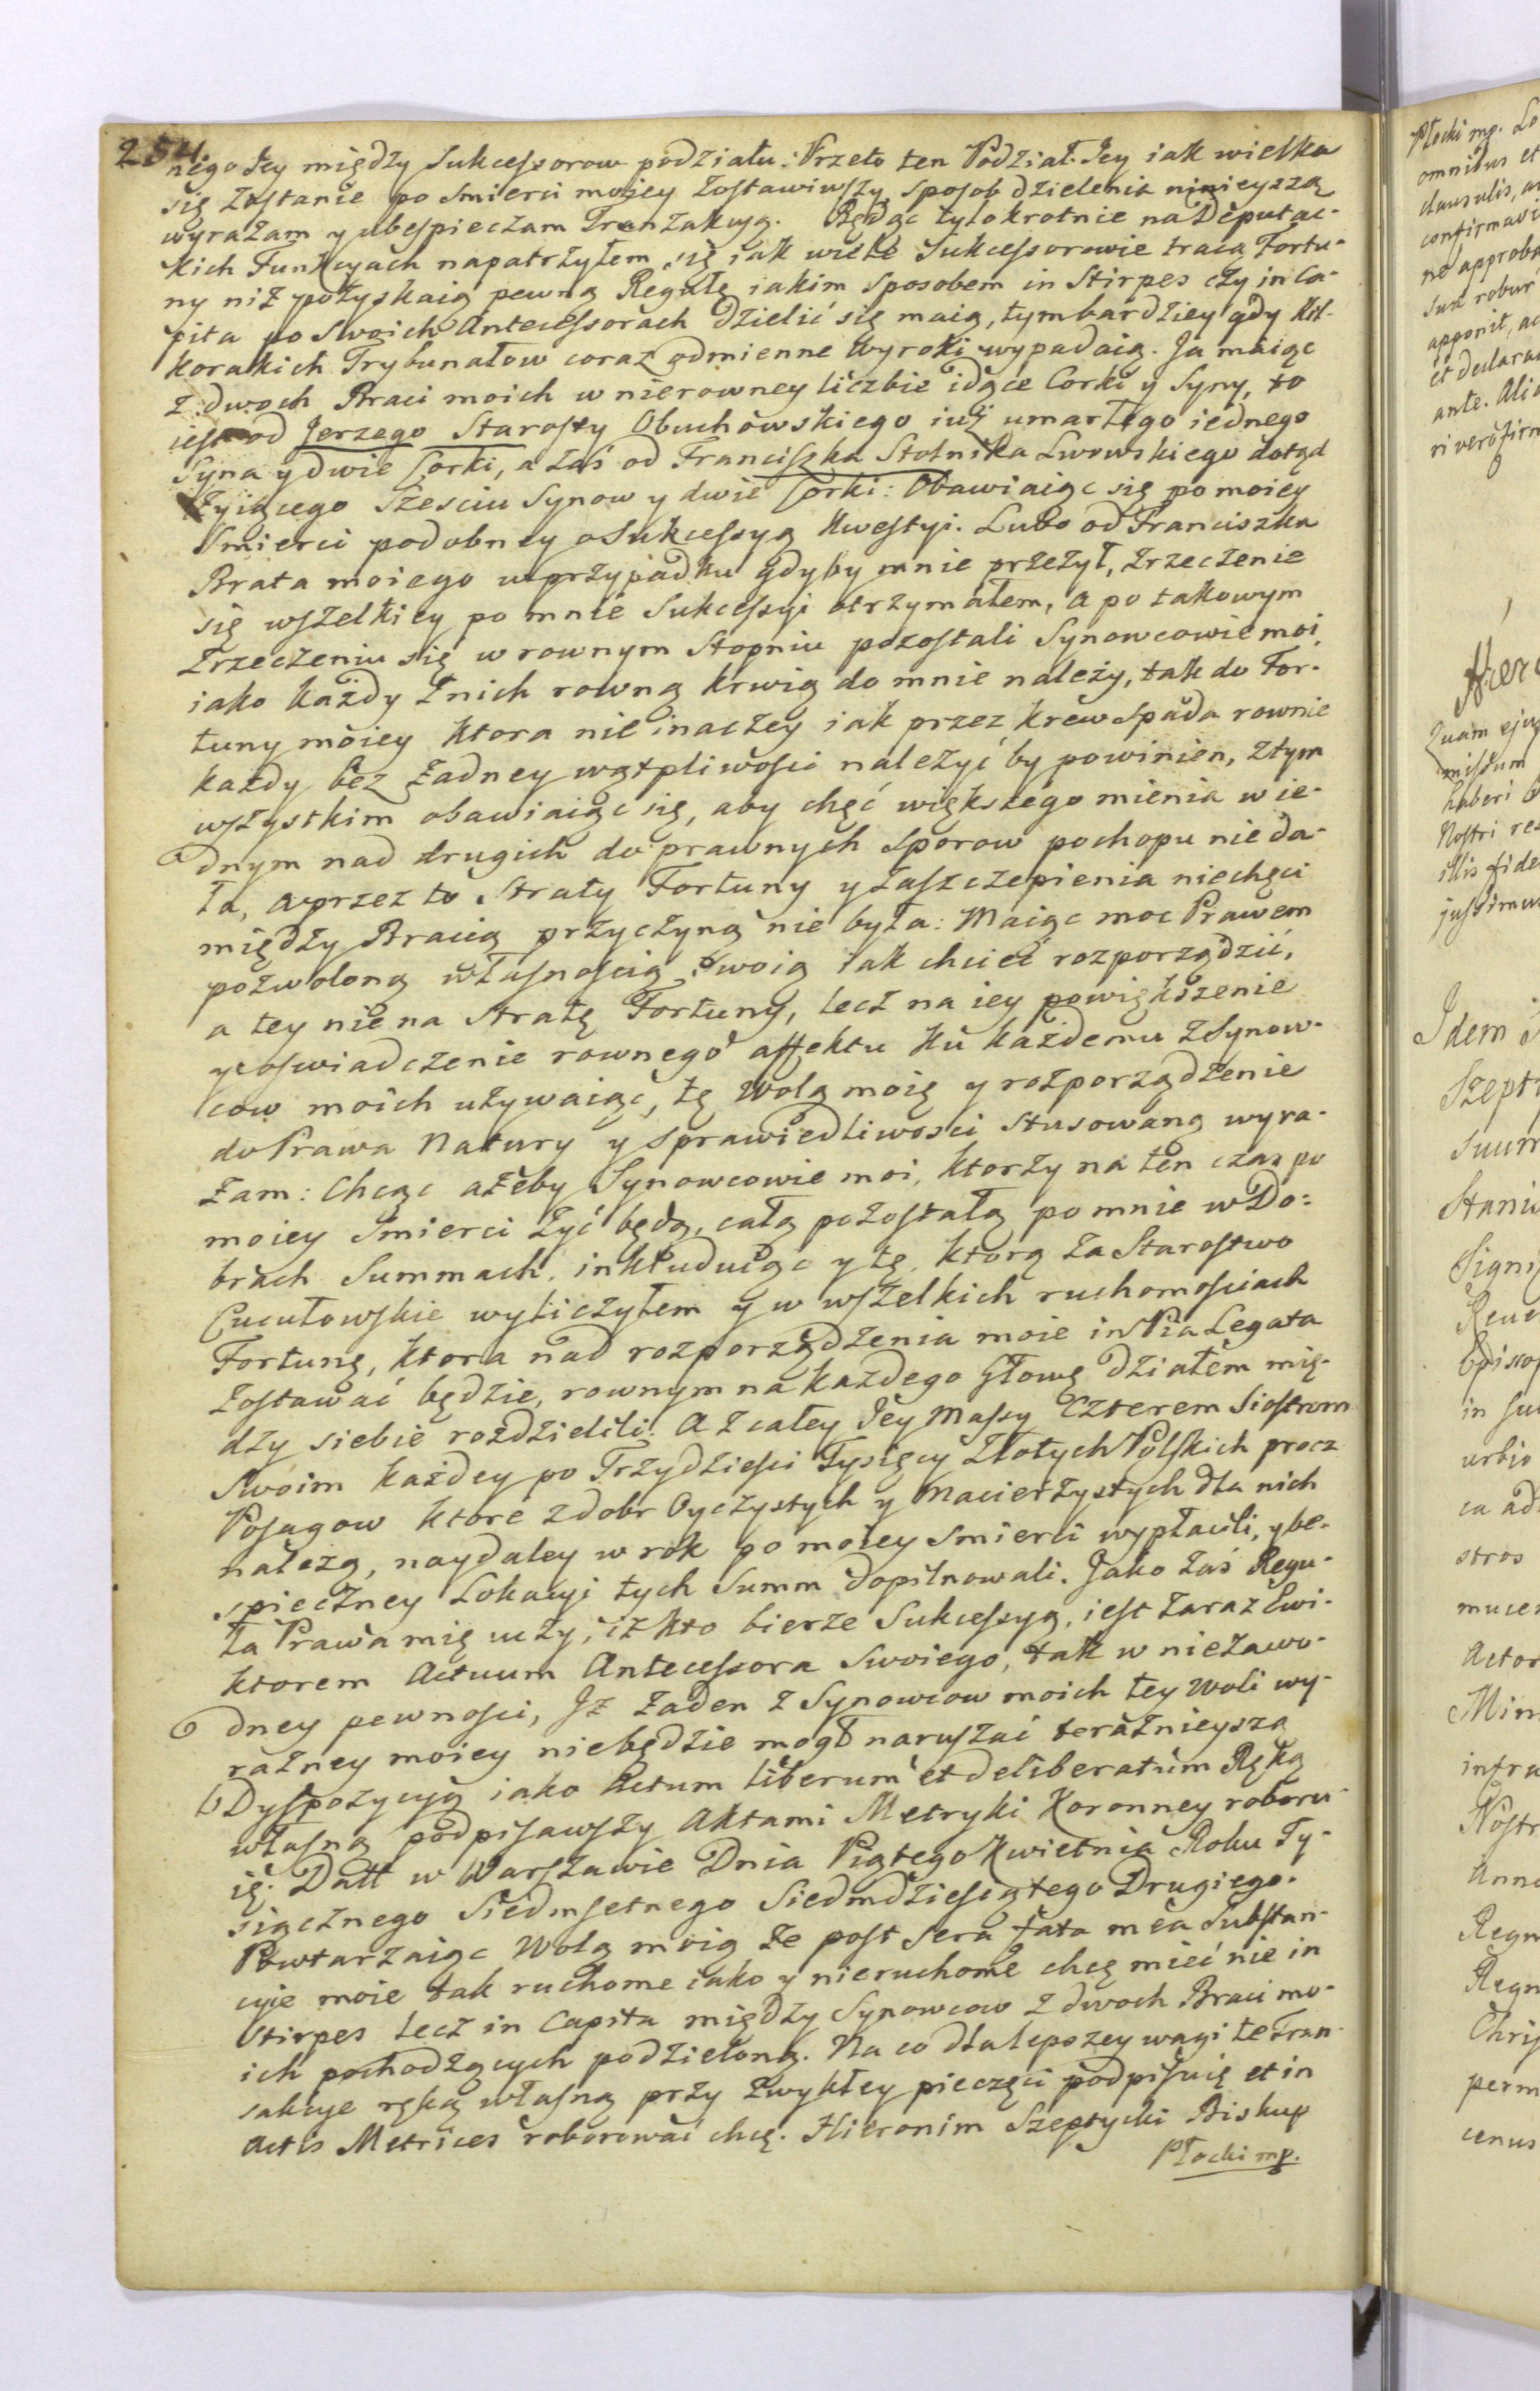 254
niego Jey między Sukcessorow podziału: Przeto ten Podział Jey iak wielka
się zostanie po Smierci moiey zostawiwszy sposob dzielenia ninieyszą
wyrażam y ubespieczam Tranzakcyą. Będąc tylokrotnie na Deputac-
kich Funkcyach napatrzyłem się iak wiele Sukcessorowie tracą Fortu-
ny niż pozyskaią pewną Regułę iakim Sposobem in Stirpes czy in Ca-
pita po Swoich Antecessorach dzielić się maią, tymbardziey gdy Kil-
korakich Trybunałow coraz odmienne wyroki wypadaią. Ja maiąc
z dwoch Braci moich w nierowney liczbie idące Corki y Syny, to
iest od Jerzego Starosty Obuchowskiego iuż umarłego iednego
Syna y dwie Corki, a zaś od Franciszka Stolnika Lwowskiego dotąd
żyiącego Szesciu Synow y dwie Corki: Obawiaiąc się po moiey
Smierci podobney o Sukcessyą Kwestyi. Lubo od Franciszka
Brata moiego w przypadku gdyby mnie przeżył, zrzeczenie
się wszelkiey po mnie Sukcessyi otrzymałem, a po takowym
zrzeczeniu się w rownym Stopniu pozostali Synowcowie moi,
iako każdy z nich rowną krwią do mnie należy, tak do For-
tuny moiey ktora nie inaczey iak przez krew spada rownie
każdy bez żadney wątpliwości należyć by powinien, z tym
wszystkim obawiaiąc się, aby chęć większego mienia w ie-
dnym nad drugich do prawnych sporow pochopu nie da-
ła, a przez to Straty Fortuny y zaszczepienia niechęci
między Bracią przyczyną nie była: Maiąc moc Prawem
pozwoloną własnością swoią iak chcieć rozporządzić,
a tey nie na Stratę Fortuny, lecz na iey powiększenie
y oswiadczenie rownego affektu ku każdemu z Synow-
cow moich używaiąc, tę Wolą moię y rozporządzenie
do Prawa Natury y sprawiedliwości stusowaną wyra-
żam: Chcąc ażeby Synowcowie moi, ktorzy na ten czas po
moiey Smierci żyć będą, całą pozostałą po mnie w Do-
brach Summach, inkluduiąc y tę, ktorą za Starostwo
Cucułowskie wyliczyłem y w wszelkich ruchomościach
Fortunę, ktora nad rozporządzenia moie in Pia Legata
zostawać będzie, rownym na każdego Głowę działem mię-
dzy siebie rozdzielili. A z całey Jey Massy Czterem Siostrom
Swoim każdey po Trzydzieści Tysięcy Złotych Polskich procz
Posagow ktore z dobr Oyczystych y Macierzystych dla nich
należą, naydaley w rok po moiey Smierci wypłacili, y be-
spieczney Lokacyi tych Summ dopilnowali. Jako zaś Regu-
ła Prawa mię uczy, iż kto bierze Sukcessyą, iest zaraz Ewi-
ktorem Actuum Antecessora Swoiego, tak w niezawo-
dney pewności, Jż żaden z Synowcow moich tey woli wy-
rażney moiey niebędzie mogł naruszać teraźnieyszą
Dyspozycyą iako Actum liberum et deliberatum Ręką
własną podpisawszy Aktami Metryki Koronney roboru-
ię. Datt w Warszawie Dnia Piątego Kwietnia Roku Ty-
siącznego Siedmsetnego Siedmdziesiątego Drugiego.
Powtarzaiąc Wolą moią że post sera fata mea Substan-
cyie moie tak ruchome iako y nieruchome chcę mieć nie in
Stirpes lecz in Capita między Synowcow z dwoch Braci mo-
ich pochodzących podzieloną. Na co dla lepszey wagi te Tran-
sakcye ręką własną przy zwykłey pieczęci podpisuię et in
Actis Metrices roborować chcę. Hieronim Szeptycki Biskup
Płocki mp.
Płocki mp. Lo
omnibus et
clausulis, ar
confirmavi
ne approba
sua robur
apponit, ac
et declara
ante. Ali
ni verò firm
Hiero
Quam eju
missum
haberi
Nostri re
illis fide
jussimus
Idem
Szept
Suum
Stani
Signi
Reve
Episcop
in su
urbio
ca ad
stros
mucer
Actor
Min
infra
Nostr
Anno
Regn
Regn
Chris
perm
cenus